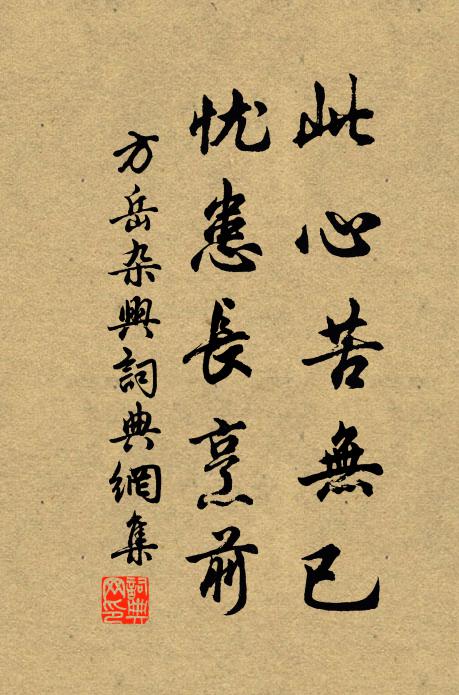 此心苦無已
忧患長烹前
方岳杂興詞典網集
詞典
网印